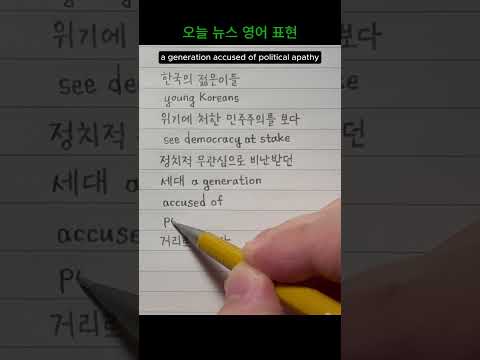 오늘 뉴스 영어 표현
a generation accused of political apathy
한국의 젊은이들
young Koreans
위기에 처한 민주주의를 보다
see democracy at stake
정치적 무관심으로 비난받던
세대 a generation
accused of
거리로